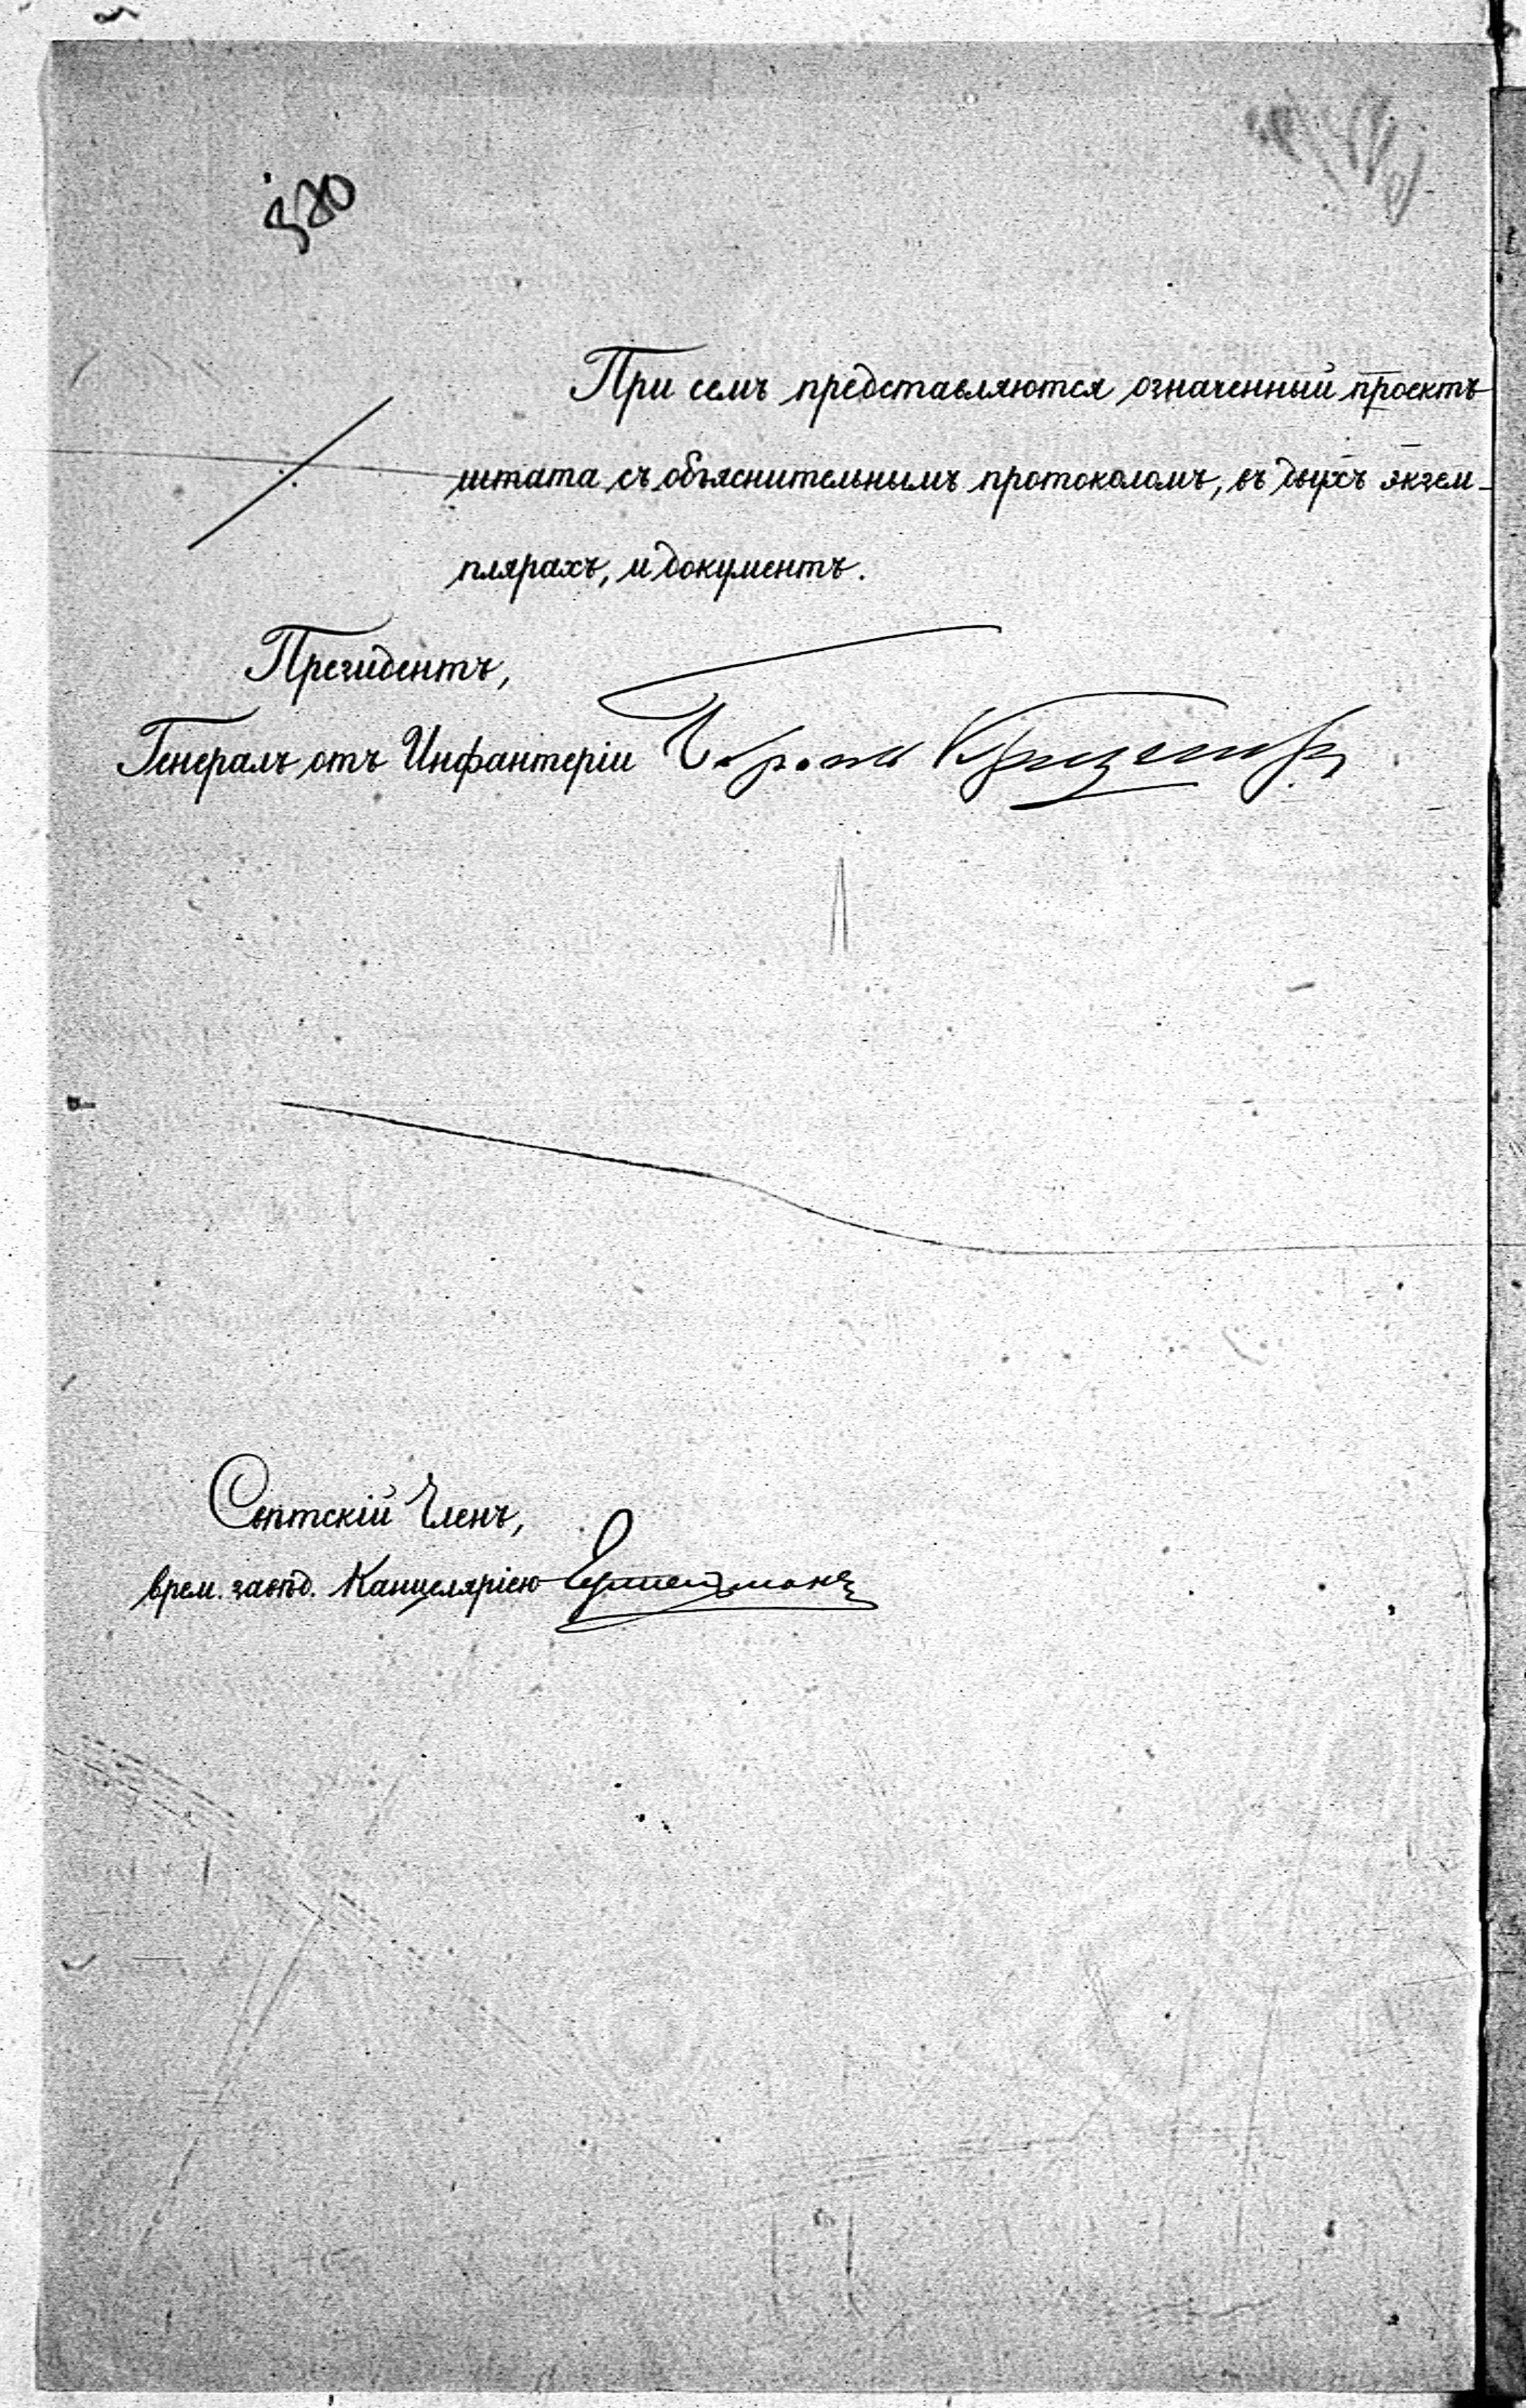 320
При семъ представляются означенный проектъ
штата съ объяснительнымъ протоколомъ, въ двухъ экзем-
плярахъ, и документъ.
Президентъ,
Генералъ отъ Инфантеріи Баронъ Кридене́ръ
Свѣтскій Членъ,
врем. завѣд. Канцеляріею